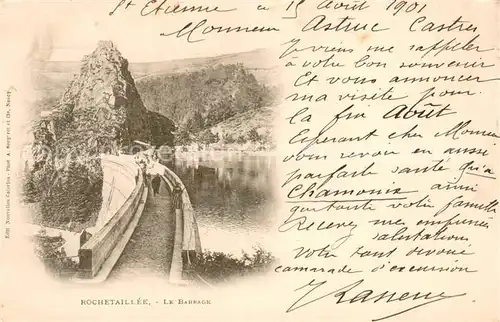 St Etienne ce 15 Août 1901
Monsieur Astruc Castres
Je viens me rappeler
à votre bon souvenir
Et vous annoncer
ma visite pour
la fin Août
Esperant cher Monsieur
vous revoir en aussi
parfaite santé qu'à
Chamonix ainsi
que toute votre famille
Recevez mes empressées
salutations
Votre tout dévoué
camarade d'excursion
ROCHETAILLÉE. - LE BARRAGE